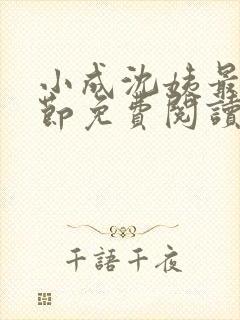 小成沈姨最
節免費閱讀
千語千夜